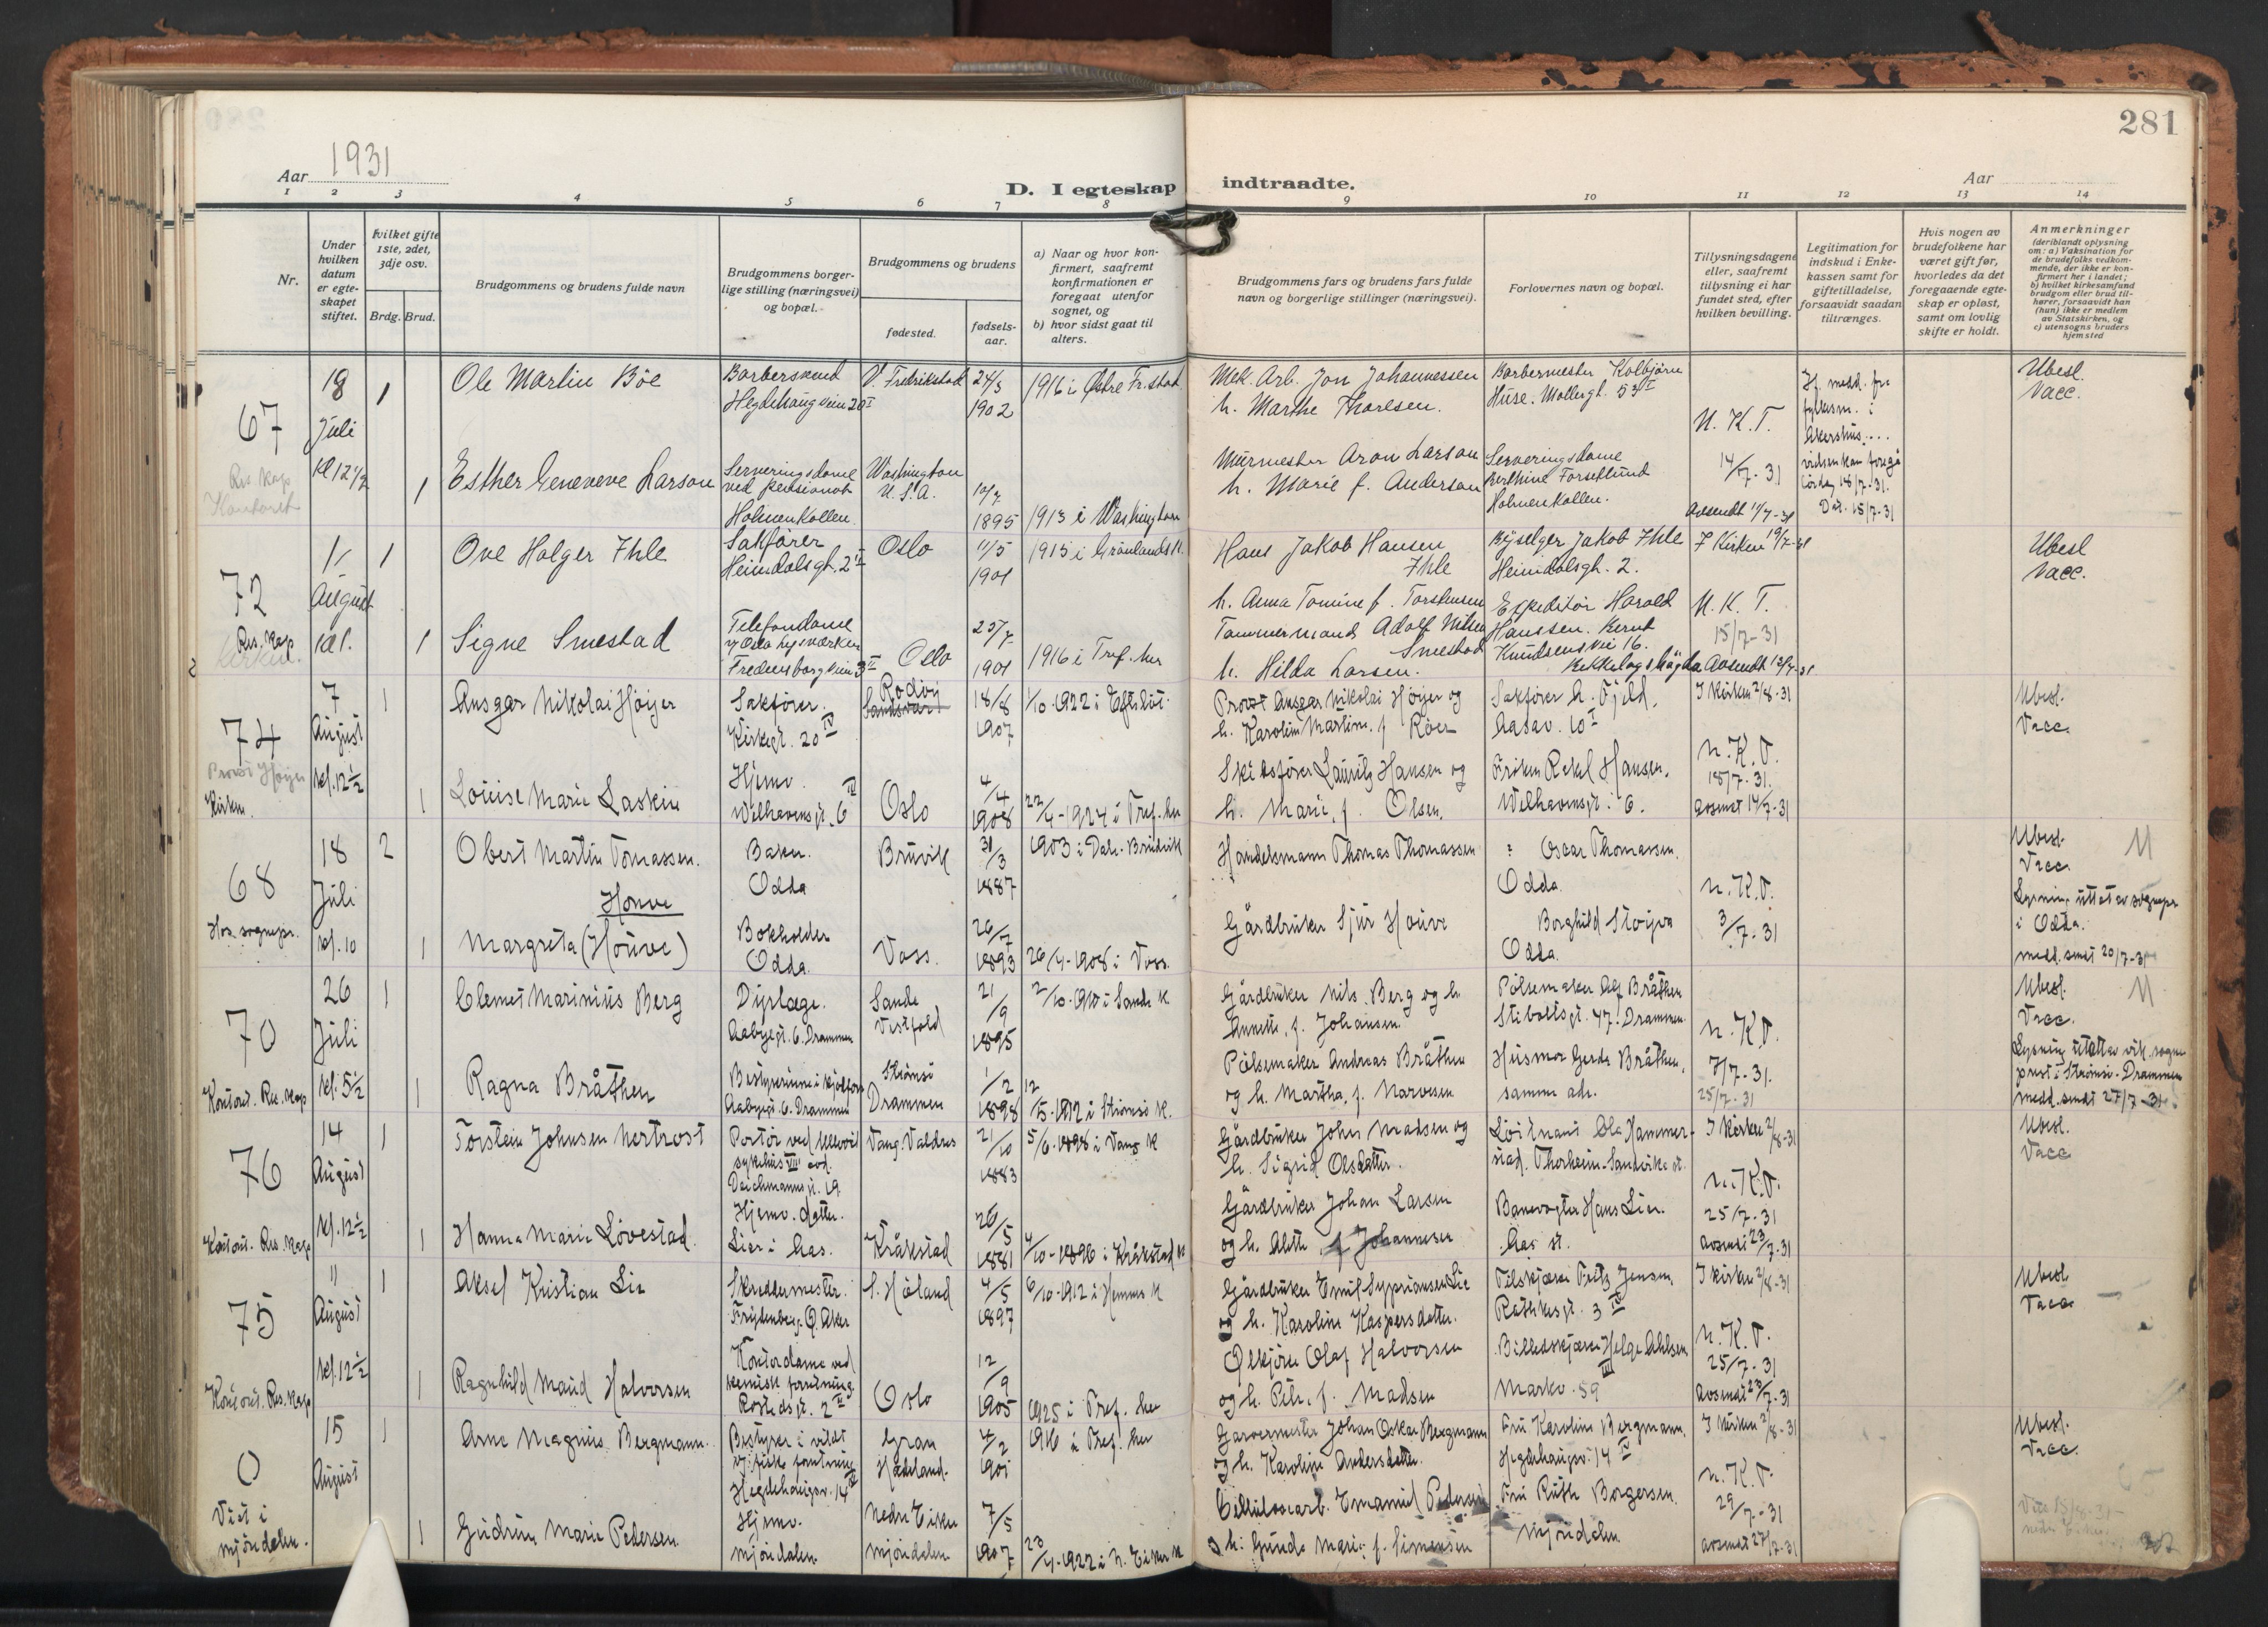 281
Aar 1931
D. I egteskap indtraadte.
Aar
1 2 3 4 5 6 7 8 9 10 11 12 13 14
Nr.
Under hvilken datum er egteskapet stiftet.
Hvilket gifte 1ste, 2det, 3dje osv.
Brdg. Brud.
Brudgommens og brudens fulde navn
Brudgommens borgerlige stilling (næringsvei) og bopæl.
Brudgommens og brudens
fødested.
fødselsaar.
a) Naar og hvor konfirmert, saafremt konfirmationen er foregaat utenfor sognet, og
b) hvor sidst gaat til alters.
Brudgommens fars og brudens fars fulde navn og borgerlige stillinger (næringsvei).
Forlovernes navn og bopæl.
Tillysningsdagene eller, saafremt tillysning ei har fundet sted, efter hvilken bevilling.
Legitimation for indskud i Enkekassen samt for giftetilladelse, forsaavidt saadan tiltrænges.
Hvis nogen av brudefolkene har været gift før, hvorledes da det foregaaende egteskap er opløst, samt om lovlig skifte er holdt.
Anmerkninger
(deriblandt oplysning om: a) Vaksination for de brudefolks vedkommende, der ikke er konfirmert her i landet; b) hvilket kirkesamfund brudgom eller brud tilhører, forsaavidt han (hun) ikke er medlem av Statskirken, og c) utensogns bruders hjemsted
67
Res. Kap
Kontoret
18 Juli Kl 12 1/2
1
Ole Martin Böe
Barbersvend
Hegdehaugveien 20 I
V. Fredrikstad
24/3 1902
1916 i Østre Fr.stad
Mek. Arb. Jon Johannessen
h. Marthe Thoresen.
Barbermester Kolbjørn
Huse. Mollergt. 53 I
N. K. T.
14/7-31
Avsendt 11/7-31
Akershus
lördag 18/7-31.
Dat. 15/7-31
Ubesl.
Vacc.
1
Esther Geneveve Larson
Serveringsdame
ved pensionat
Holmenkollen.
Washington
U. S. A.
10/7 1895
1913 i Washington
Murmester Aron Larson
h. Marie f. Anderson
Serveringsdame
Berthine Forseflund
Holmenkollen.
72
Res. Kap
Kirken.
1/ August Kl 1.
1
Ove Holger Ihle
Sakfører
Heimdalsgt. 2 II
Oslo
11/5 1901
1915 i Grönlands K.
Hans Jakob Hansen
Ihle
h. Anna Tomine f. Torstensen
Byselger Jakob Ihle
Heimdalsgt. 2.
I Kirken 19/7-31
N. K. T.
15/7-31
Avsendt 13/7-31
Ubesl
Vacc.
1
Signe Smestad
Telefondame
v/ Oslo lysverker
Fredensborgveien 3 II
Oslo
25/7 1901
1916 i Tref. her
Tømmermand Adolf Nilsen
Smestad
h. Hilda Larsen.
Expeditör Harald
Hanssen. Bernt
Knudsensvei 16.
Bekkelagshögda
74
Provst Höyer
Kirken.
7 August kl. 12 1/2
1
Ansgar Nikolai Höyer
Sakfører.
Kirkegt. 20 IV
Rödöy
Sandsvær
18/8 1907
1/10-1922 i Efteløt.
Provst Ansgar Nikolai Höyer og
h. Karolin Martine. f Röer
Sakfører A. Fjeld.
Aasav. 10 I
I Kirken 2/8-31
N. K. T.
18/7-31.
avsendt 14/7-31
Ubesl.
Vacc.
1
Louise Marie Laskin
Hjemv.
Welhavensgt. 6 IV
Oslo
4/4 1908
22/4-1924 i Tref. her
Skibsfører Lauritz Hansen og
h. Marie, f. Olsen.
Frøken Rekl Hansen.
Welhavensgt. 6.
68
Hos sognepr.
18 Juli kl. 10
2
Obert Martin Tomassen.
Baker.
Odda
Bruvik
31/3 1887
1903 i Dale. Bruvik
Handelsmann Thomas Thomassen
: Oscar Thomassen.
Odda.
N. K. T.
3/7-31
Ubesl.
Vacc.
Lysning uttat av sognepr
i Odda.
medd. sendt 20/7-31
M
Houve
1
Margreta (Houve)
Bokholder
Odda.
Voss.
26/7 1893
26/4-1908 i Voss.
Gårdbruker Sjur Houve
Borghild Stoipa
Odda.
70
Kontoret. Res. Kap
26 Juli kl. 5 1/2
1
Clemet Marinius Berg
Dyrlæge.
Aabyegt. 6. Drammen
Sande
Vestfold
21/9 1895
2/10-1910 i Sande K
Gårdbruker Nils Berg og h.
Annette, f. Johansen.
Pölsemaker Alf Bråthen
Stiboltsgt. 47. Drammen.
N. K. T.
7/7-31.
25/7-31
Ubesl.
Vacc.
Lysning uttatt av vik. sogne
prest i Strömsö. Drammen
medd. sendt 27/7-31.
M
1
Ragna Bråthen
Bestyrerinne i kjolforr
Aabyegt. 6. Drammen
Strömsö
Drammen
1/2 1898
12/5-1912 i Strömsö K.
Pölsemaker Andreas Bråthen
og h. Martha, f. Narvesen
Husmor Gerda Bråthen,
samme adr.
76
Kontoret. Res. Kap
14 August kl. 12 1/2
1
Torstein Johnsen Nertrost
Portör ved Ullevål
sykehus VIII avd.
Deichmannsgt. 19
Vang. Valdres
21/10 1883
5/6-1898 i Vang K
Gårdbruker John Madsen og
h. Sigrid Olsdatter.
Löitnant Ola Hammer-
stad. Thorheim-Sandvika st.
I kirken 2/8-31
N. K. T.
25/7-31
avsendt 23/7-31
Ubesl.
Vacc
1
Hanna Marie Lövestad.
Hjemv. datter.
Lier i Aas.
Kråkstad
26/5 1881
4/10-1896 i Kråkstad K
Gårdbruker Johan Larsen
og h. Alette, f Johannesen
Banevogter Hans Lier.
Aas st.
75
Kontoret. Res. Kap
" August kl. 12 1/2
1
Aksel Kristian Lie
Skreddermester.
Frydenberg. Ø. Aker
S. Höland
4/5 1897
6/10-1912 i Hemnes K
Gårdbruker Emil Syppriansen Lie
og h. Karoline Kaspersdatter.
Filskjærer Fritz Jensen.
Rathkesgt. 3 IV
I kirken 2/8-31
N. K. T.
25/7-31
avsendt 23/7-31
Ubesl
Vacc
1
Ragnhild Maud Halvorsen
Kontordame ved
kemisk forretning.
Rostedsgt. 2 II
Oslo
12/9 1905
1925 i Tref. her
Ølkjörer Olaf Halvorsen
og h. Petr. f. Madsen
Billedskjærer Helge Ahlsen
Markv. 59 III
0
Viet i
Mjöndalen.
15 August
1
Arne Magnus Bergmann.
Bestyrer i vildt
og fiske forretning
Hegdehaugsv. 14 IV
Gran
Hadeland.
4/2 1901
1916 i Tref. her
Garvermester Johan Oskar Bergmann
og h. Karoline Andersdatter.
Fru Karoline Bergmann.
Hegdehaugsv. 14 IV
I kirken 2/8-31
N. K. T.
29/7-31
avsendt 27/7-31
Ubesl.
Vacc.
Viet 15/8-31
nedre Eiker.
1
Gudrun Marie Pedersen.
Hjemv.
Mjöndalen.
Nedre Eiker
Mjöndalen
7/5 1907
23/4-1922 i N. Eiker K
Cellulosearb. Emanuel Pedersen
og h. Gunda Marie f. Simensen
Fru Ruth Borgersen.
Mjöndalen